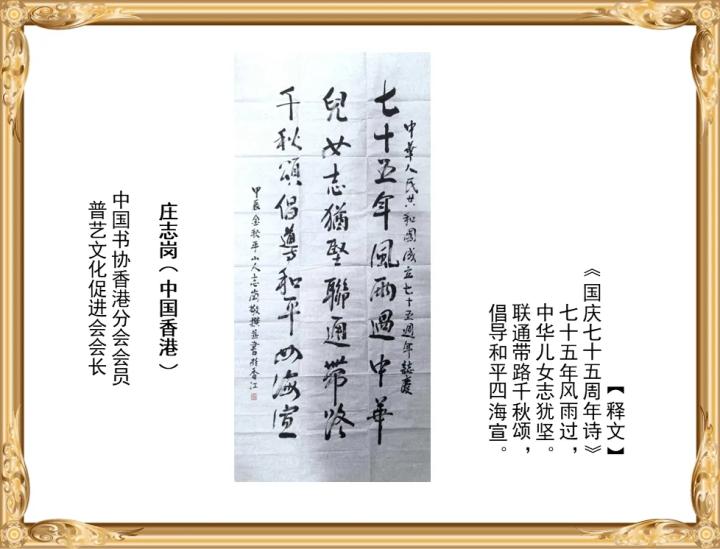 【释文】
《国庆七十五周年诗》
七十五年风雨过，
中华儿女志犹坚。
联通带路千秋颂，
倡导和平四海宣。
中華人民共和國成立七十五週年誌慶
七十五年風雨過中華
兒女志猶堅聯通帶路
千秋頌倡導和平四海宣
甲辰金秋平山人志崗敬撰並書於香江
庄志岗（中国香港）
中国书协香港分会会员
普艺文化促进会会长